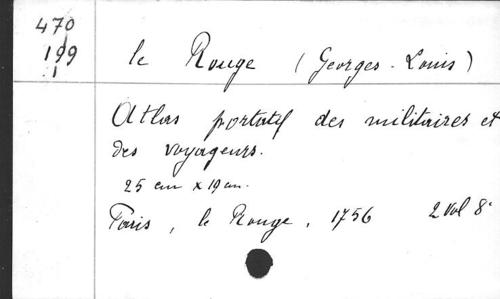 470
199
1
le Rouge (Georges-Louis)
Atlas portatif des militaires et
des voyageurs.
25 cm x 19 cm.
Paris, le Rouge, 1756 2 vol 8°